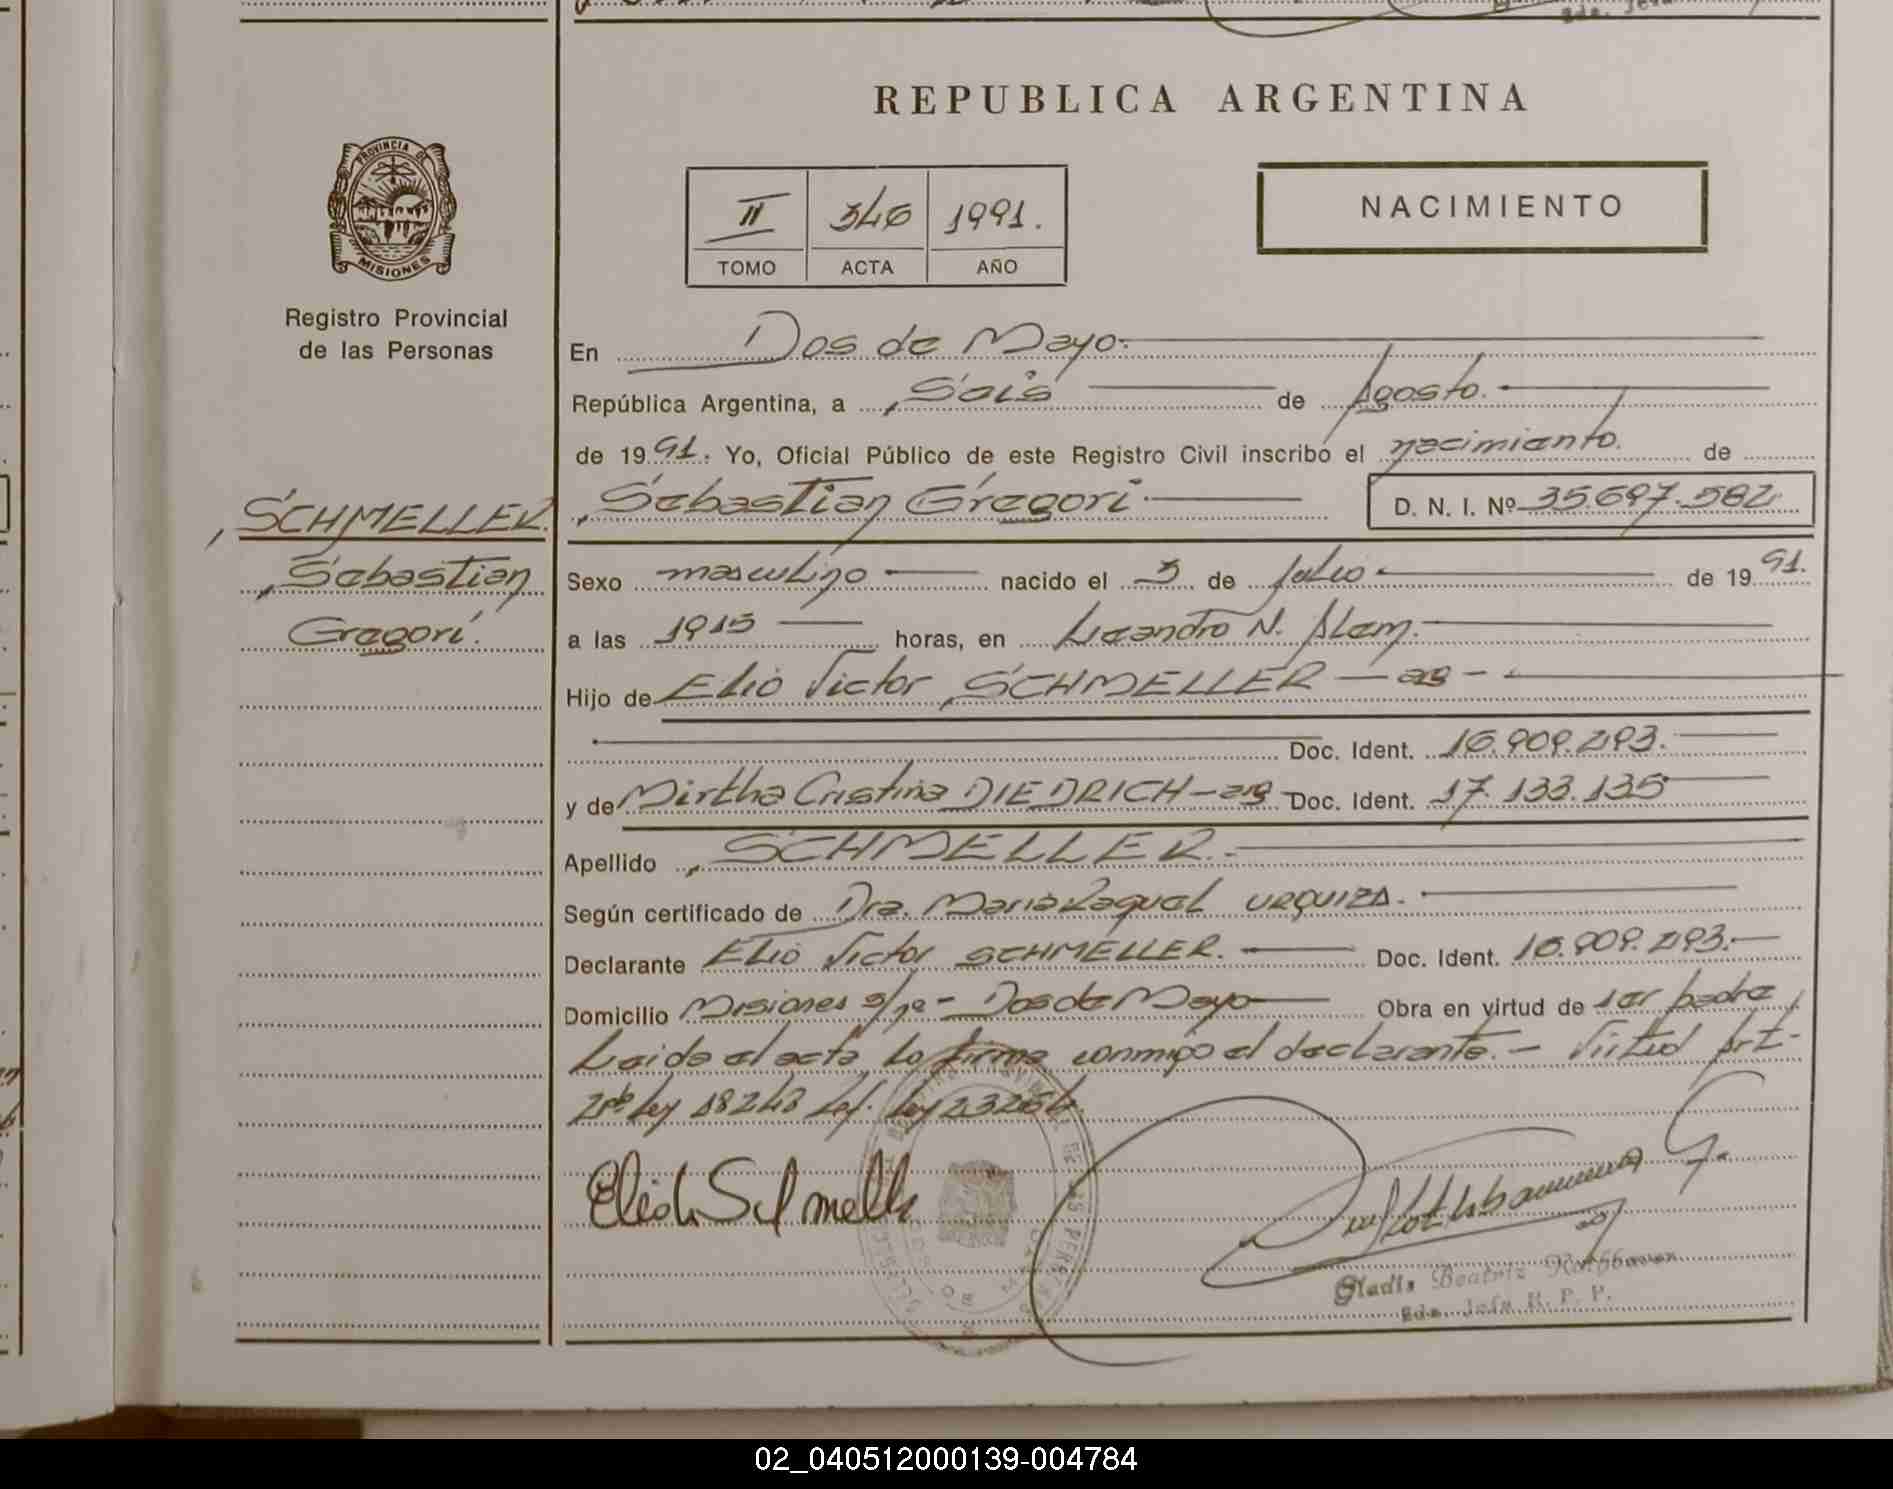 REPUBLICA ARGENTINA
PROVINCIA DE
MISIONES
Registro Provincial
de las Personas
II 346 1991.
TOMO ACTA AÑO
NACIMIENTO
En Dos de Mayo.
República Argentina, a Seis de Agosto.
de 1991. Yo, Oficial Público de este Registro Civil inscribo el nacimiento. de
Sebastian Gregori. D. N. I. Nº 35.697.582
SCHMELLER.
Sebastian
Gregori.
Sexo masculino nacido el 3 de Julio de 1991.
a las 1915 horas, en Leandro N. Alem.
Hijo de Elio Victor SCHMELLER — arg —
Doc. Ident. 16.909.293.
y de Mirtha Cristina DIEDRICH — arg — Doc. Ident. 17.133.135
Apellido SCHMELLER.
Según certificado de Dra. Maria Raquel URQUIZA.
Declarante Elio Victor SCHMELLER. Doc. Ident. 16.909.293.
Domicilio Misiones s/nº - Dos de Mayo Obra en virtud de ser padre
Leida el acta la firma conmigo el declarante. — Virtud Art-
Ley 18248 Ley 23264
Gladis Beatriz
Jefa R. P. P.
02_040512000139-004784